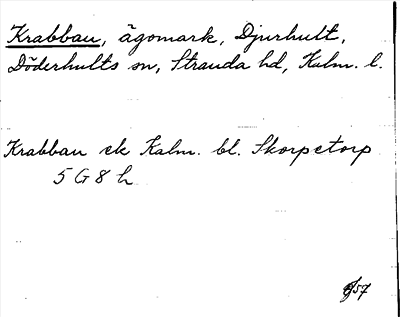 Krabbau, ägomark, Djurhult,
Döderhults sn, Stranda hd, Kalm. l.
Krabbau ek Kalm. bl. Skorpetorp
5 G 8 h
57